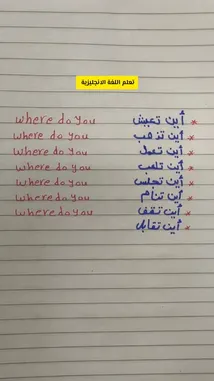 تعلم اللغة الانجليزية
* أين تعيش where do you
* أين تذهب where do you
* أين تعمل where do you
* أين تلعب where do you
* أين تجلس where do you
* أين تنام where do you
* أين تقف where do you
* أين تقابل